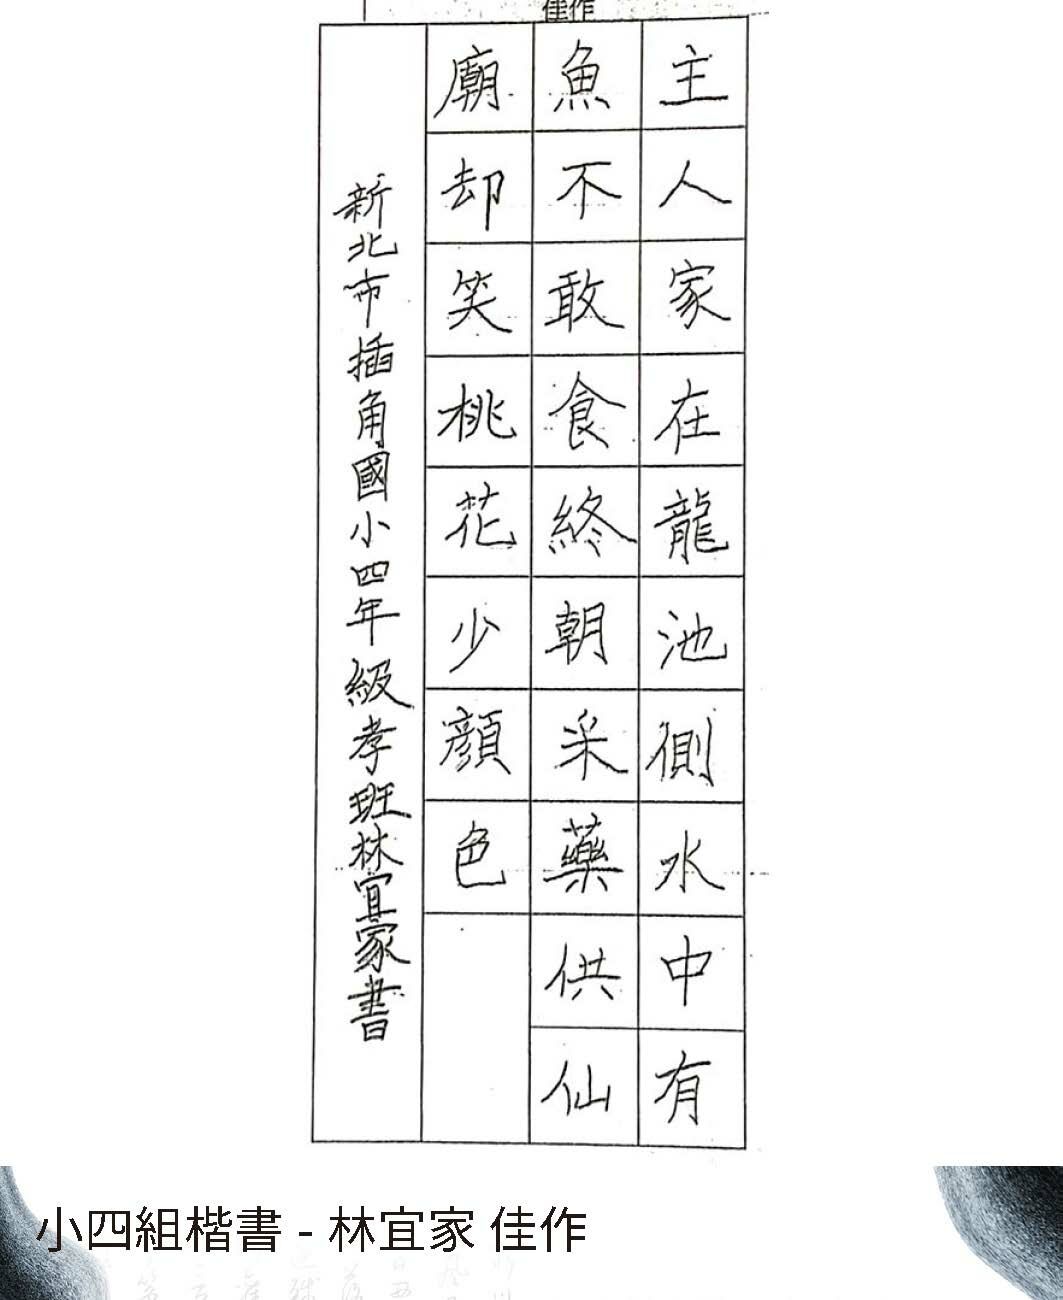 佳作
主人家在龍池側水中有
魚不敢食終朝采藥供仙
廟却笑桃花少顔色
新北市插角國小四年級孝班林宜家書
小四組楷書 - 林宜家 佳作